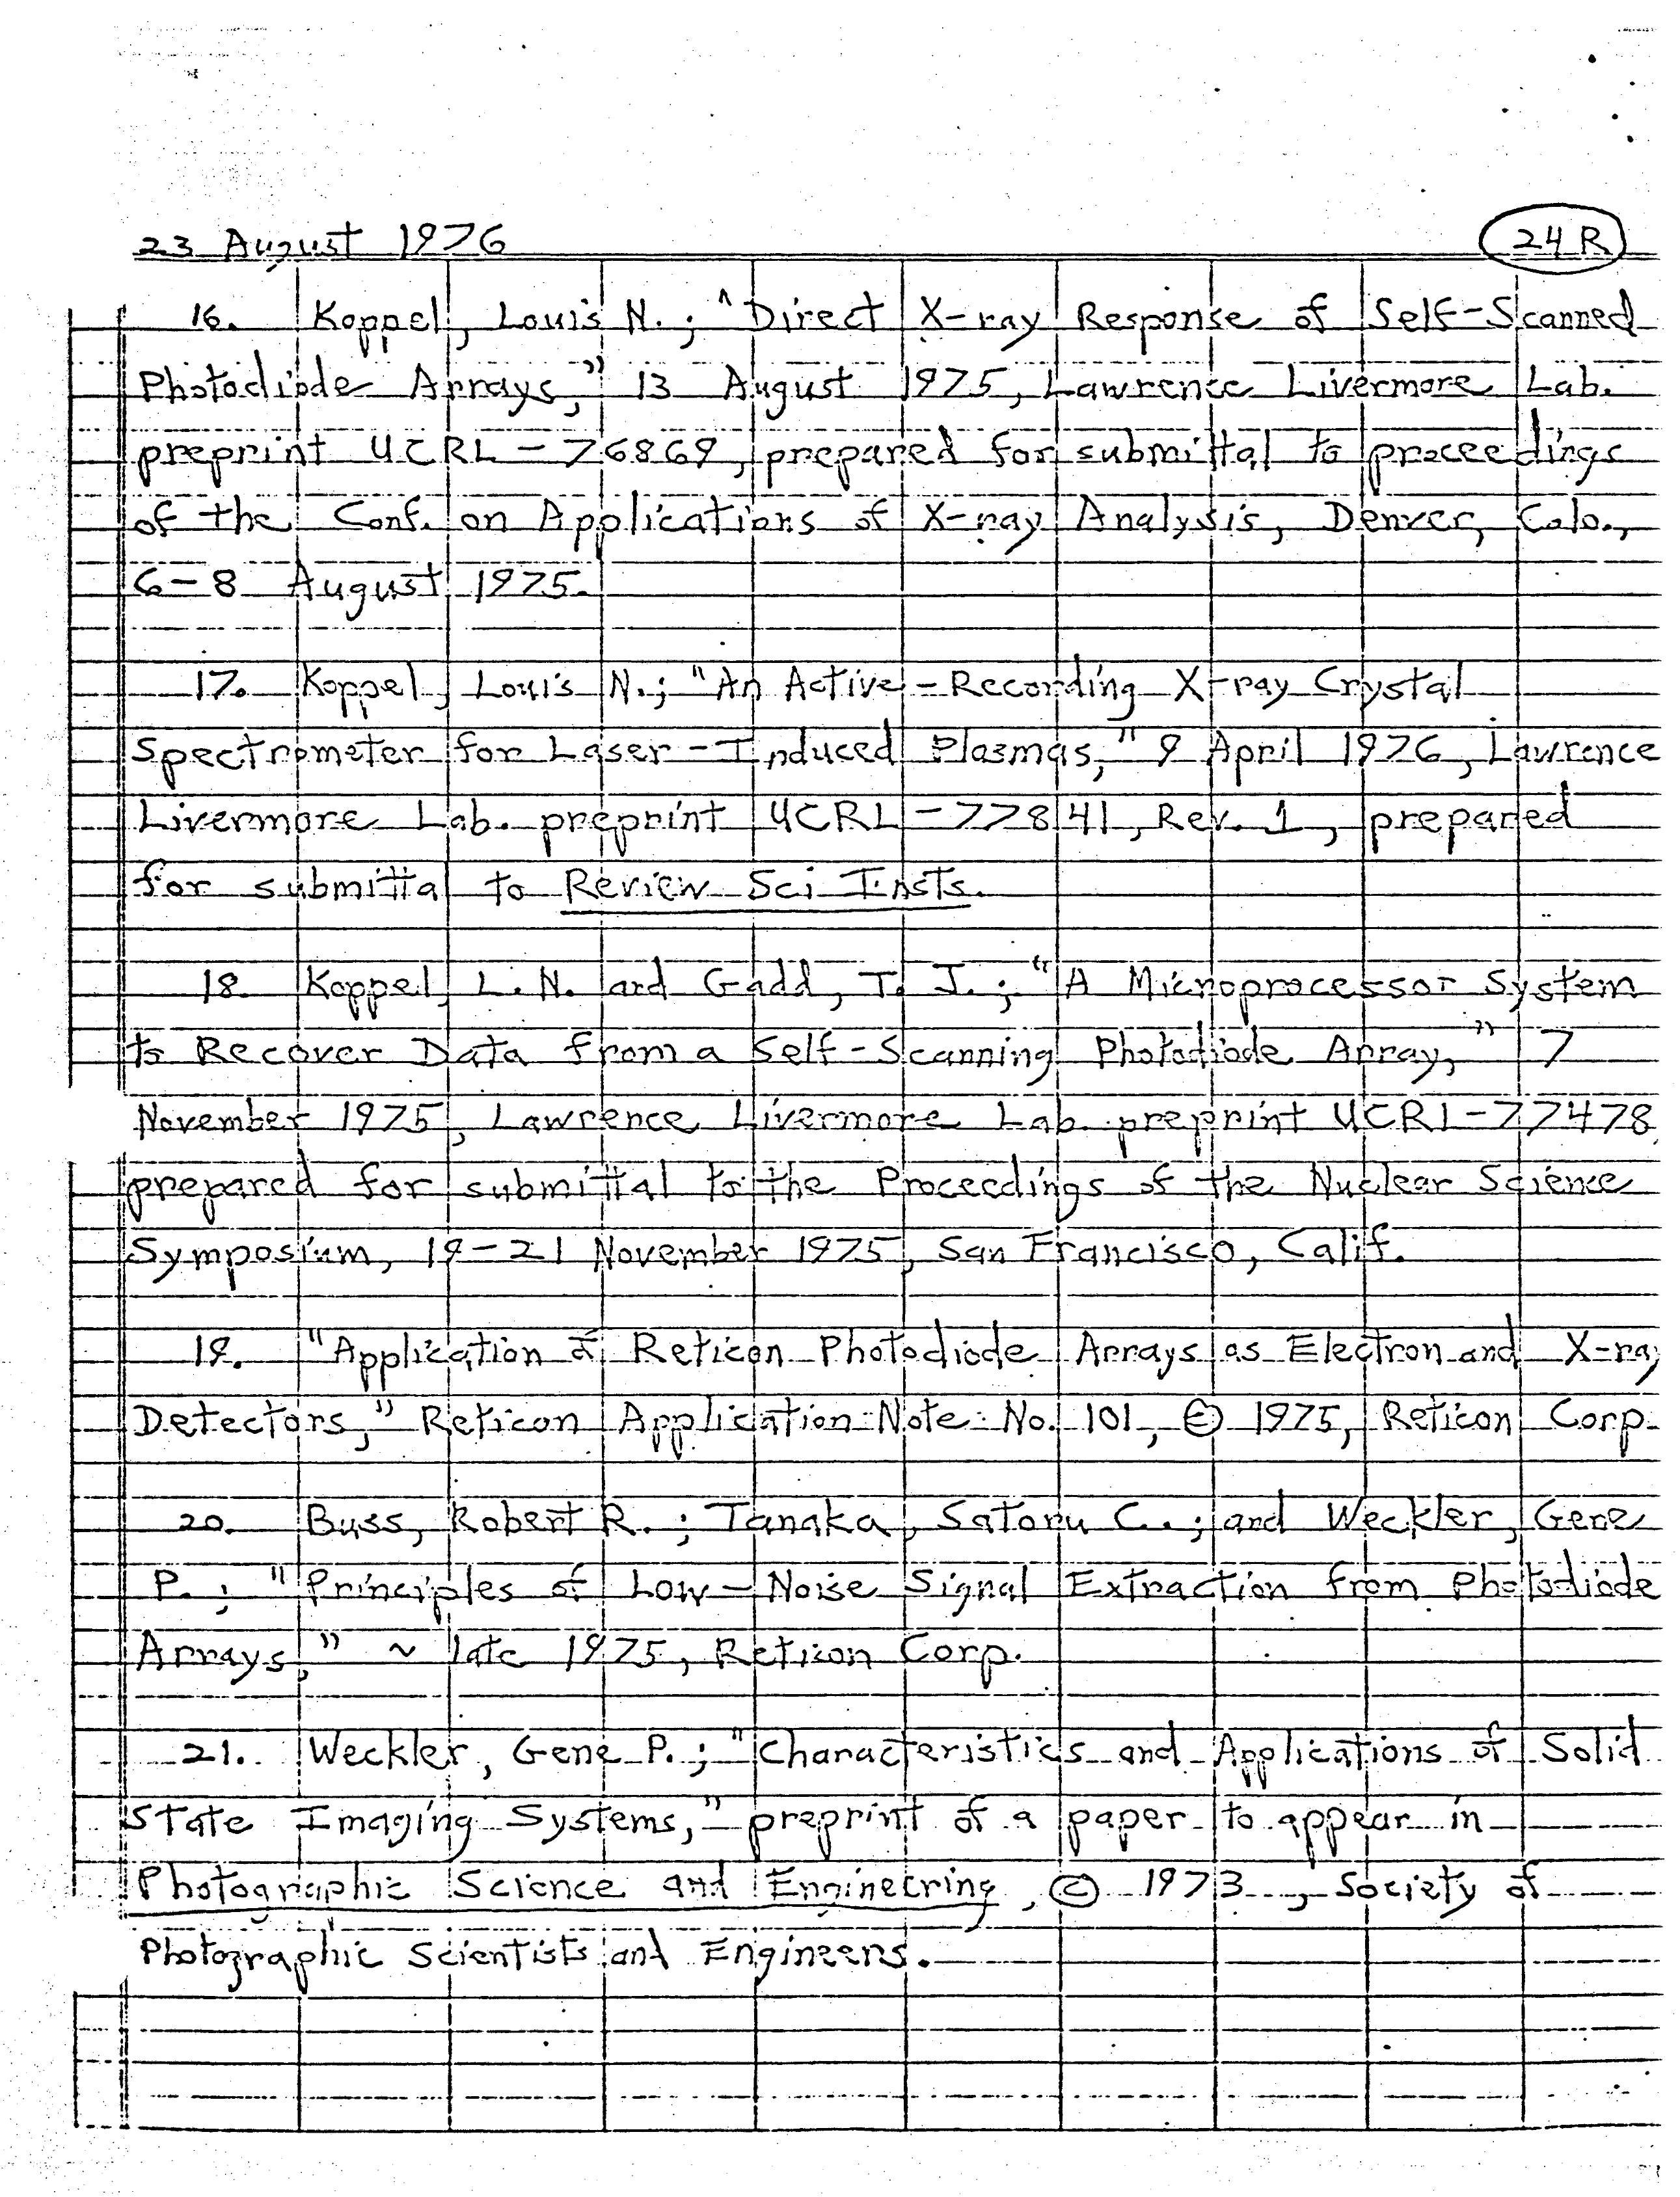 23 August 1976 24R
16. Koppel, Louis N.; "Direct X-ray Response of Self-Scanned
Photodiode Arrays," 13 August 1975, Lawrence Livermore Lab.
preprint UCRL-76869, prepared for submittal to proceedings
of the Conf. on Applications of X-ray Analysis, Denver, Colo.,
6-8 August 1975.
17. Koppel, Louis N.; "An Active-Recording X-ray Crystal
Spectrometer for Laser-Induced Plasmas," 9 April 1976, Lawrence
Livermore Lab. preprint UCRL-77841, Rev. 1, prepared
for submittal to Review Sci Insts.
18. Koppel, L. N. and Gadd, T. J.; "A Microprocessor System
to Recover Data from a Self-Scanning Photodiode Array," 7
November 1975, Lawrence Livermore Lab preprint UCRL-77478
prepared for submittal to the Proceedings of the Nuclear Science
Symposium, 19-21 November 1975, San Francisco, Calif.
19. "Application of Reticon Photodiode Arrays as Electron and X-ray
Detectors," Reticon Application Note No. 101, © 1975, Reticon Corp.
20. Buss, Robert R.; Tanaka, Satoru C.; and Weckler, Gene
P.; "Principles of Low-Noise Signal Extraction from Photodiode
Arrays," ~ late 1975, Reticon Corp.
21. Weckler, Gene P.; "Characteristics and Applications of Solid
State Imaging Systems," preprint of a paper to appear in
Photographic Science and Engineering, © 1973, Society of
Photographic Scientists and Engineers.